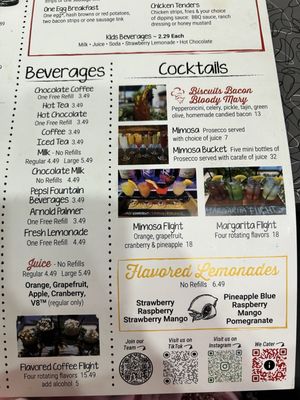 strips or one sausage link
One Egg Breakfast
One egg*, hash browns or red potatoes,
two bacon strips or one sausage link
Chicken Tenders
Chicken strips, fries & your choice
of dipping sauce: BBQ sauce, ranch
dressing or honey mustard
Kids Beverages - 2.29 Each
Milk • Juice • Soda • Strawberry Lemonade • Hot Chocolate
Beverages
Chocolate Coffee
One Free Refill 3.49
Hot Tea 3.49
Hot Chocolate
One Free Refill 3.49
Coffee 3.49
Iced Tea 3.49
Milk - No Refills
Regular 4.49 Large 5.49
Chocolate Milk
No Refills 4.49
Pepsi Fountain
Beverages 3.49
Arnold Palmer
One Free Refill 3.49
Fresh Lemonade
One Free Refill 4.49
Juice - No Refills
Regular 4.49 Large 5.49
Orange, Grapefruit,
Apple, Cranberry,
V8™ (regular only)
Flavored Coffee Flight
Four rotating flavors 15.49
add alcohol 5
Cocktails
Biscuits Bacon
Bloody Mary
Pepperoncini, celery, pickle, tajin, green
olive, homemade candied bacon 13
Mimosa Prosecco served with
choice of juice 7
Mimosa Bucket Five mini bottles of
Prosecco served with carafe of juice 32
Mimosa Flight
Orange, grapefruit,
cranberry & pineapple 18
MARGARITA FLIGHT
Margarita Flight
Four rotating flavors 18
Flavored Lemonades
No Refills 6.49
Strawberry
Raspberry
Strawberry Mango
Pineapple Blue
Raspberry
Mango
Pomegranate
Join our
Team
Visit us on
TikTok
Visit us on
Instagram
We Cater